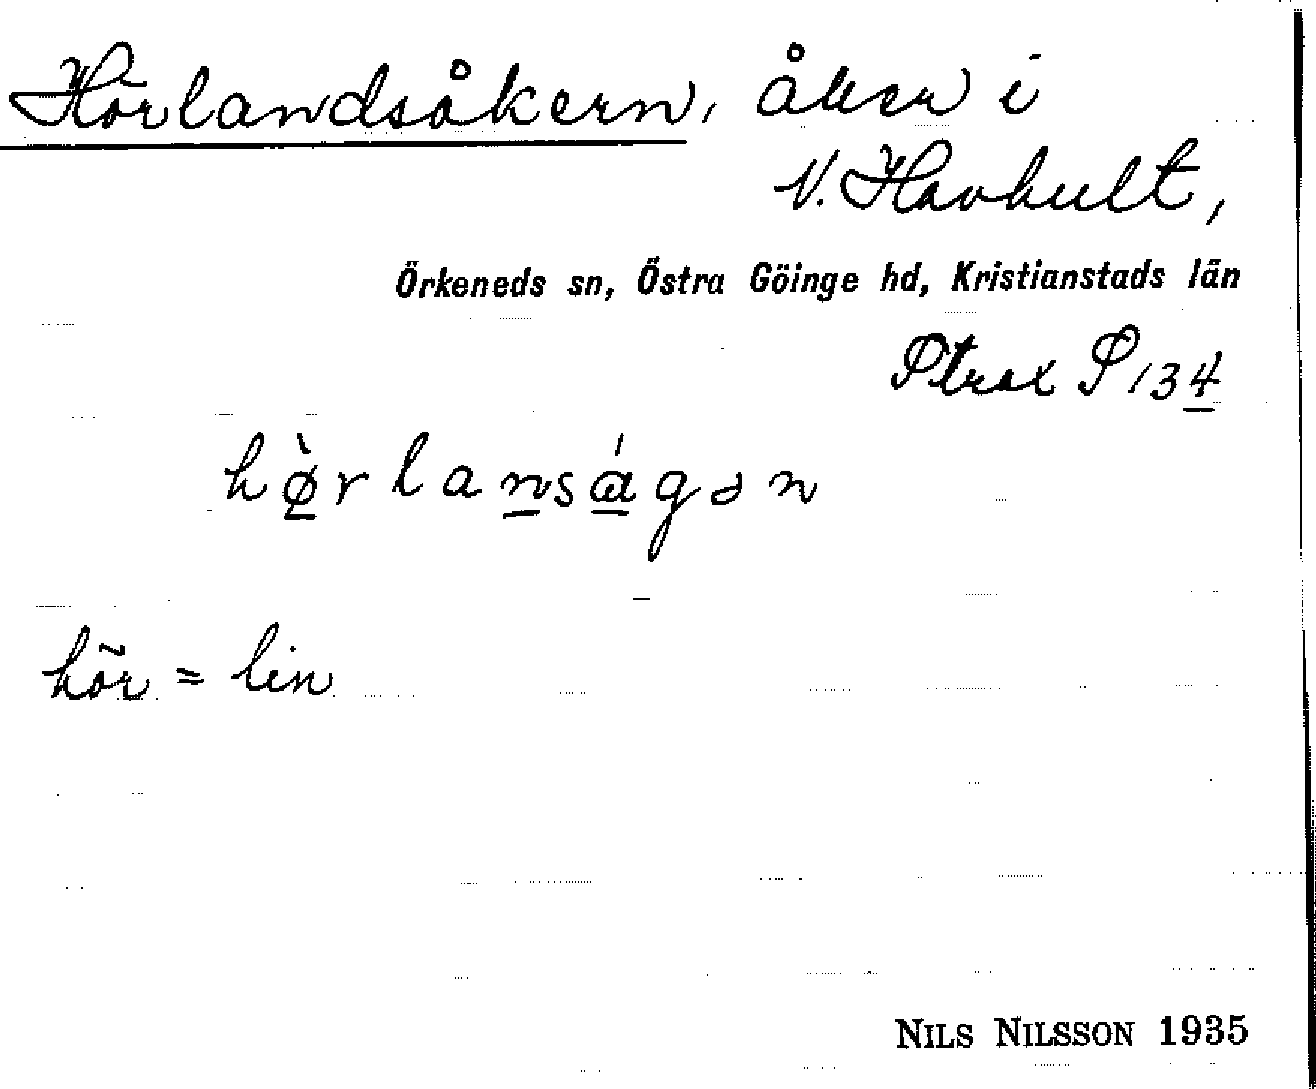 Hörlandsåkern, åker i
N. Hovhult,
Örkeneds sn, Östra Göinge hd, Kristianstads län
P 134
hø̀rlanságən
hör = lin
NILS NILSSON 1935